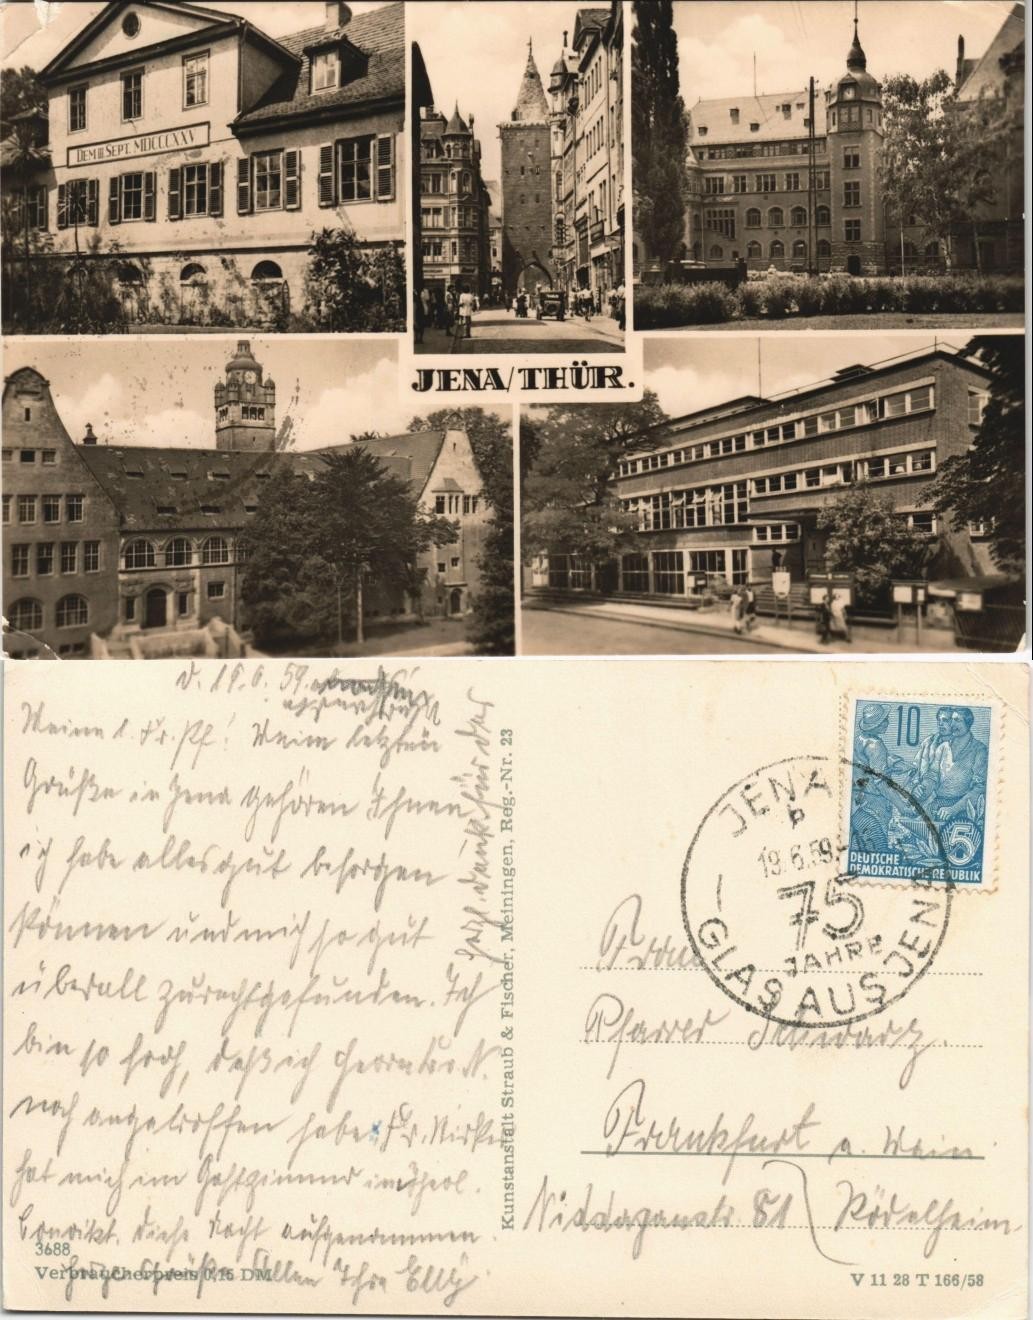 DEM III SEPT. MDCCCXXV
JENA/THÜR.
d. 19.6.59.
Meine l. Fr. Pf! Meine letzten
Grüße in Jena gehören Ihnen
ich habe alles gut besorgen
können und mich so gut
überall zurechtgefunden. Ich
bin so froh, daß ich Herrn
noch angetroffen habe. Fr.
hat mich im Gastzimmer im theol.
Konvikt. diese Nacht aufgenommen.
Grüße Allen Ihre Elly
Herzl. Dank für
3688
Verbraucherpreis 0,15 DM
Kunstanstalt Straub & Fischer, Meiningen, Reg.-Nr. 23
10
5
DEUTSCHE
DEMOKRATISCHE REPUBLIK
JENA
b
19.6.59
75
JAHRE
GLAS AUS JENA
Frau
Pfarrer Schwarz.
Frankfurt a. Main
Niddagaustr. 81 Rödelheim
V 11 28 T 166/58